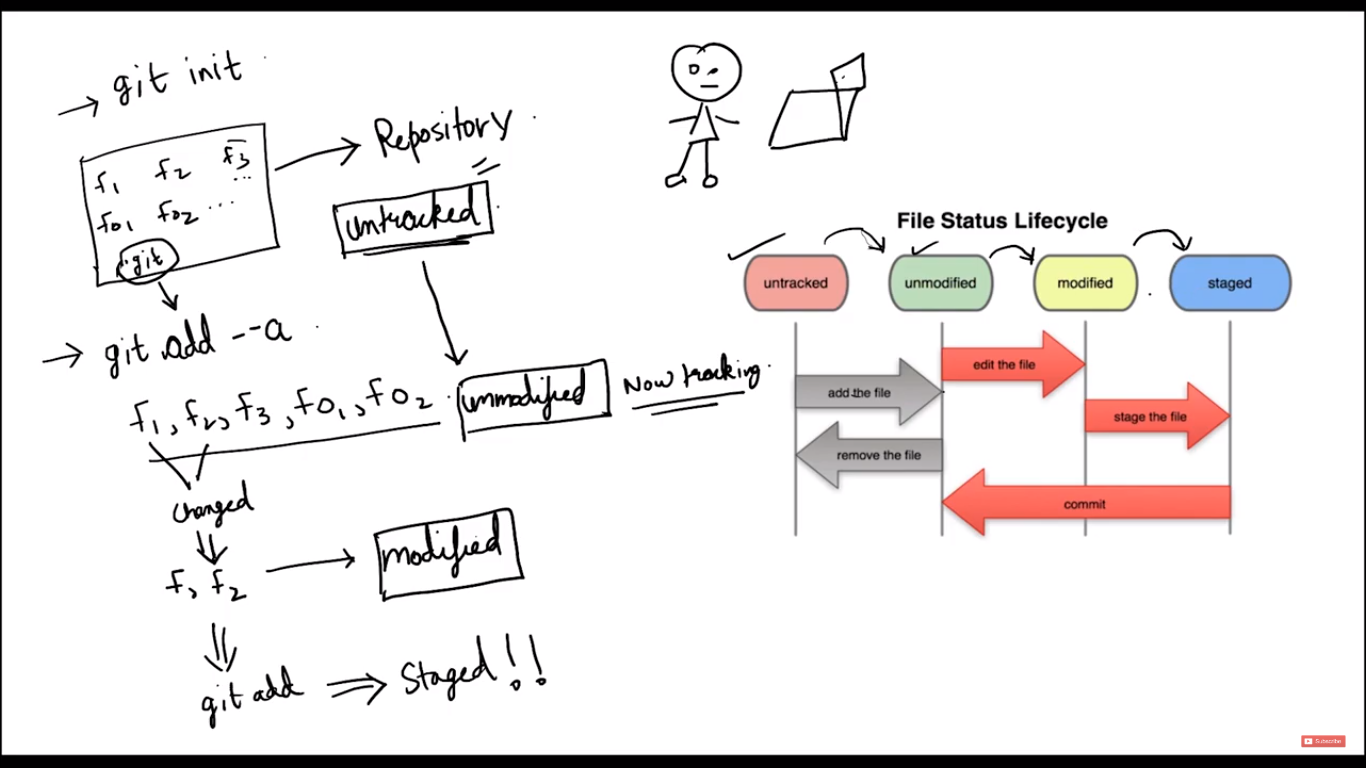 → git init
f1 f2 f3 ...
f01 f02 ...
.git
→ Repository
untracked
→ git add --a
f1, f2, f3, f01, f02
unmodified
Now tracking.
changed
f1 f2
→ modified
git add ⇒ Staged!!
File Status Lifecycle
untracked unmodified modified staged
edit the file
add the file
stage the file
remove the file
commit
Subscribe